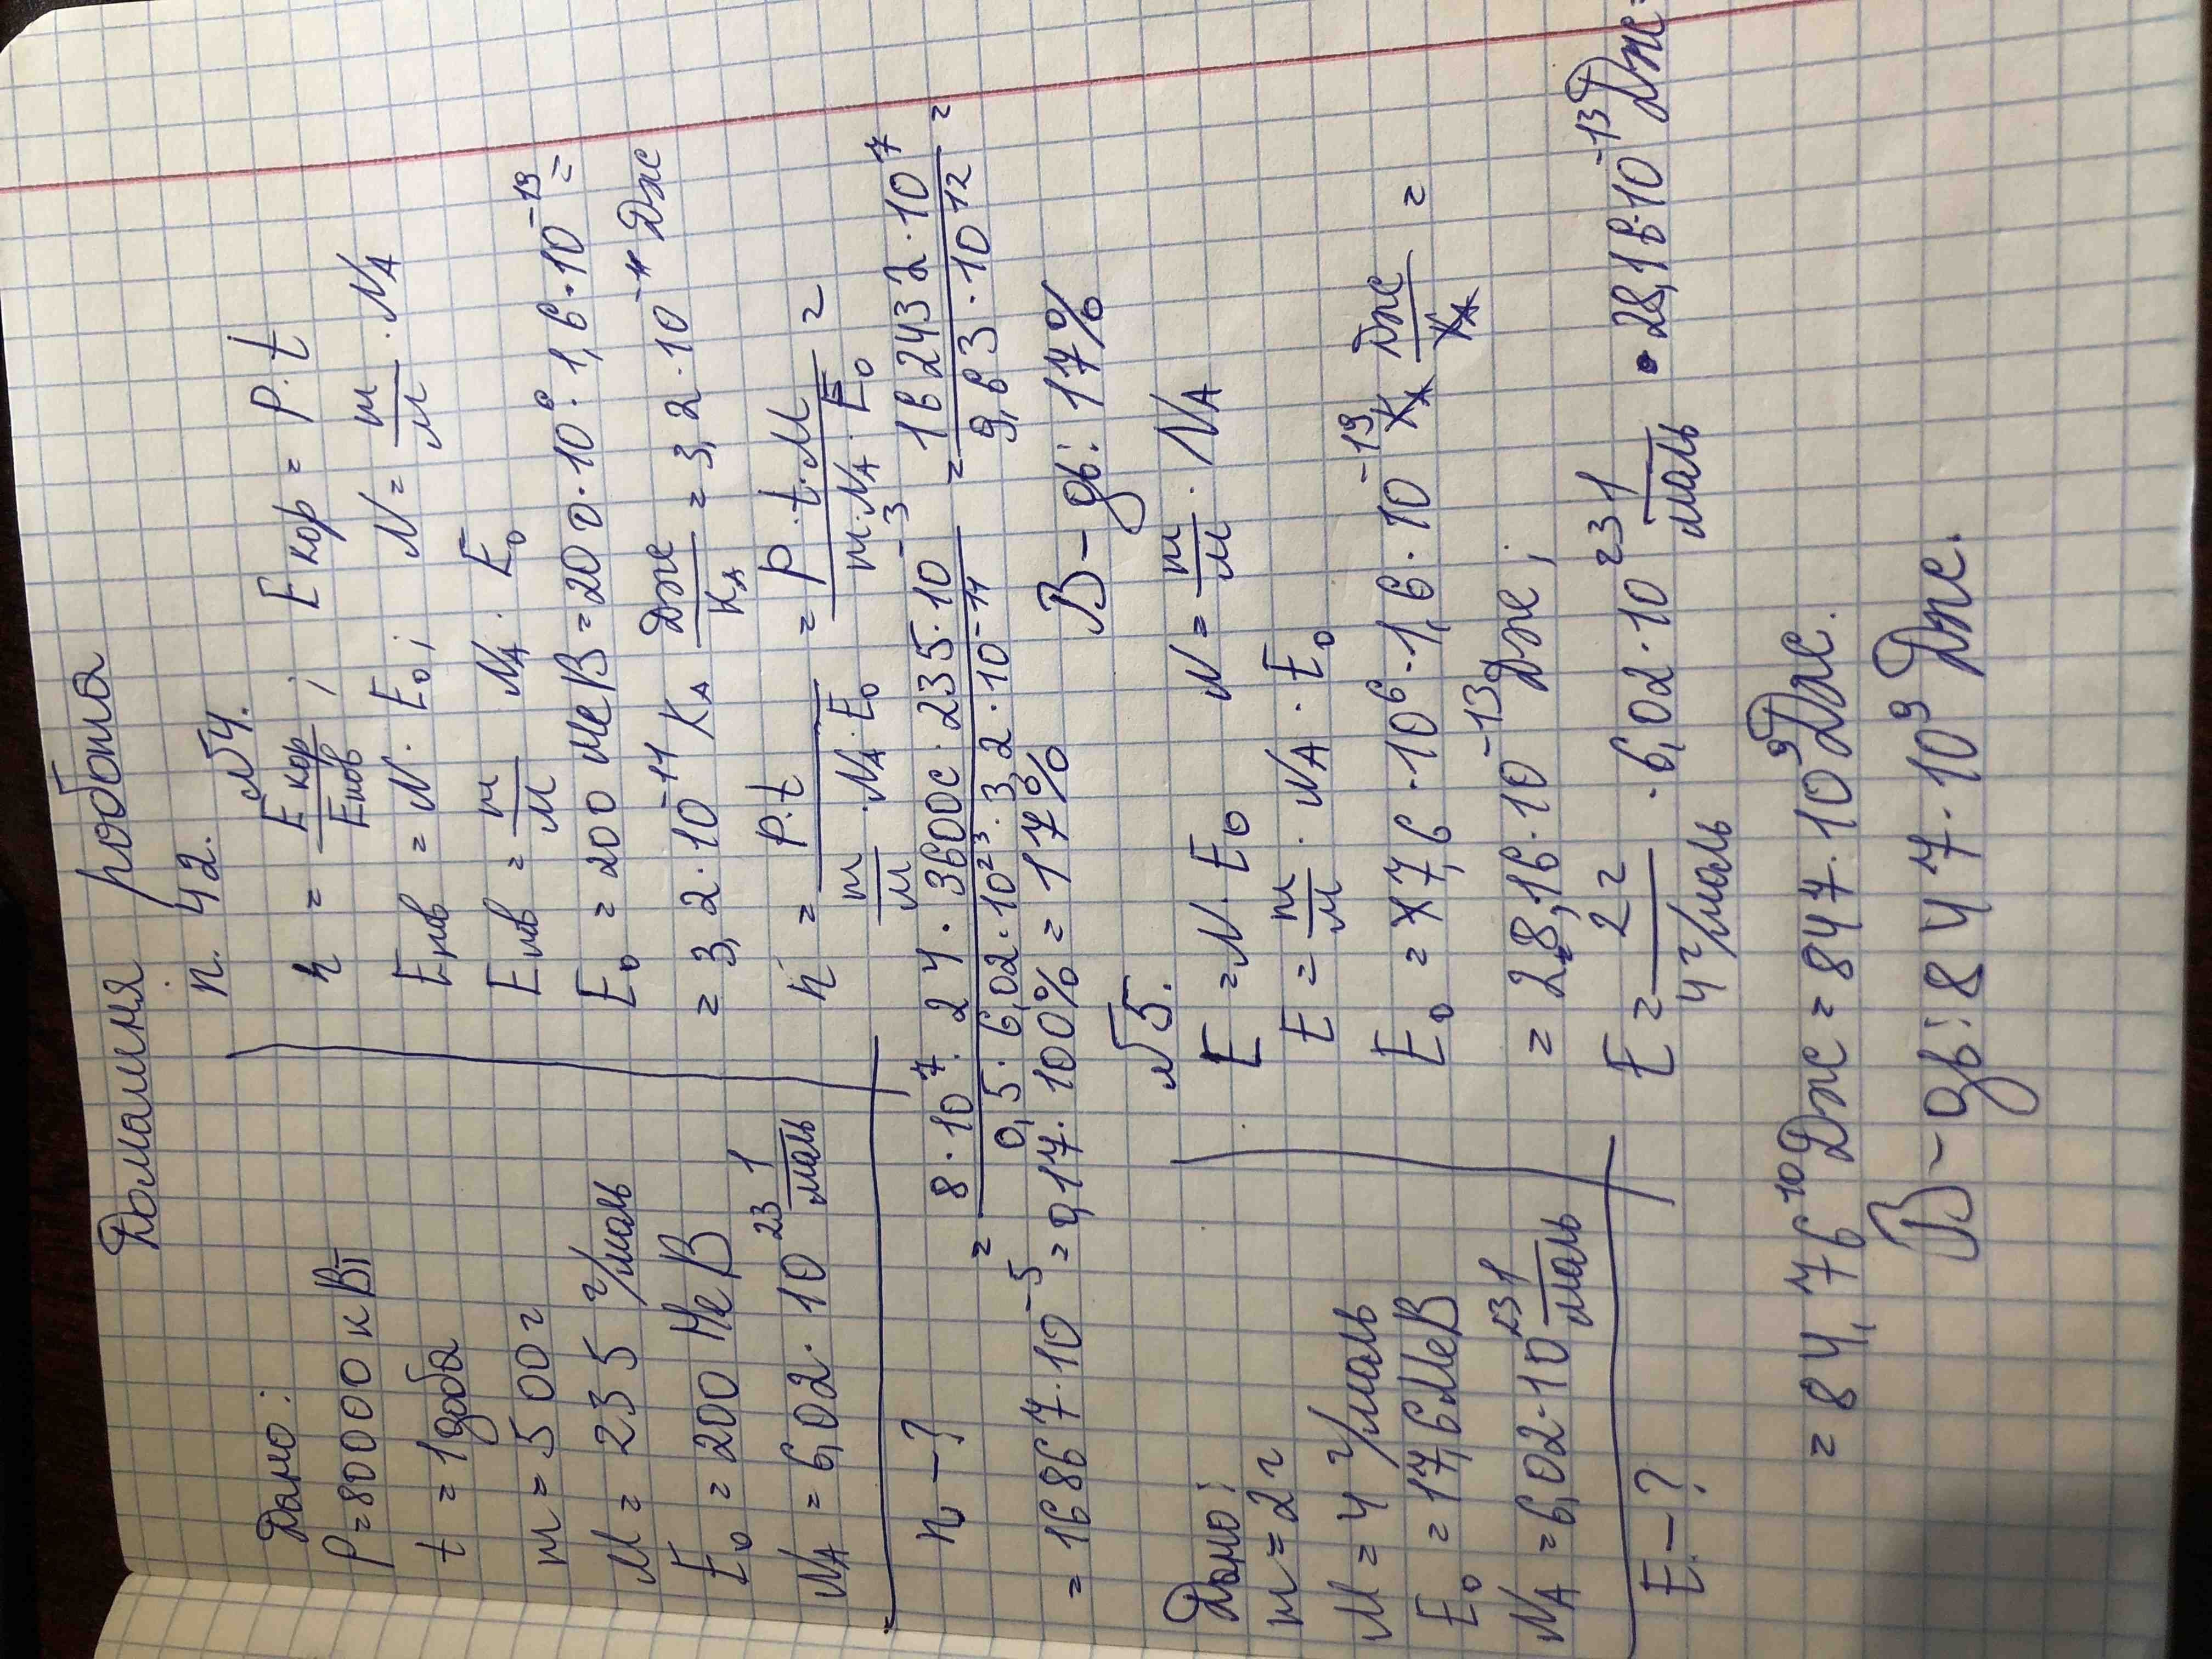 Домашня робота
п. 42.
№4.
Дано:
P = 80000 кВт
t = 1 доба
m = 500 г
M = 235 г/моль
E₀ = 200 МеВ
N_A = 6,02 · 10²³ 1/моль
η - ?
η = E кор / E пов ; E кор = P · t
E пов = N · E₀ ; N = m/M · N_A
E пов = m/M N_A · E₀
E₀ = 200 МеВ = 200 · 10⁶ · 1,6 · 10⁻¹⁹ =
= 3,2 · 10⁻¹¹ Кл Дж/Кл = 3,2 · 10⁻¹¹ Дж
η = P·t / (m/M · N_A · E₀) = P · t · M / (m · N_A · E₀) =
= 8 · 10⁷ · 24 · 3600с · 235 · 10⁻³ / (0,5 · 6,02 · 10²³ · 3,2 · 10⁻¹¹) = 162432 · 10⁷ / (9,63 · 10¹²) =
= 16867 · 10⁻⁵ = 0,17 · 100% = 17%
В-дь: 17%
№5.
Дано:
m = 2 г
M = 4 г/моль
E₀ = 17,6 МеВ
N_A = 6,02 · 10²³ 1/моль
E - ?
E = N · E₀ N = m/M · N_A
E = m/M · N_A · E₀
E₀ = 17,6 · 10⁶ · 1,6 · 10⁻¹⁹ Кл Дж/Кл =
= 28,16 · 10⁻¹³ Дж ;
E = 2 г / 4 г/моль · 6,02 · 10²³ 1/моль · 28,16 · 10⁻¹³ Дж =
= 84,76 ¹⁰ Дж = 847 · 10⁹ Дж.
В-дь: 847 · 10⁹ Дж.